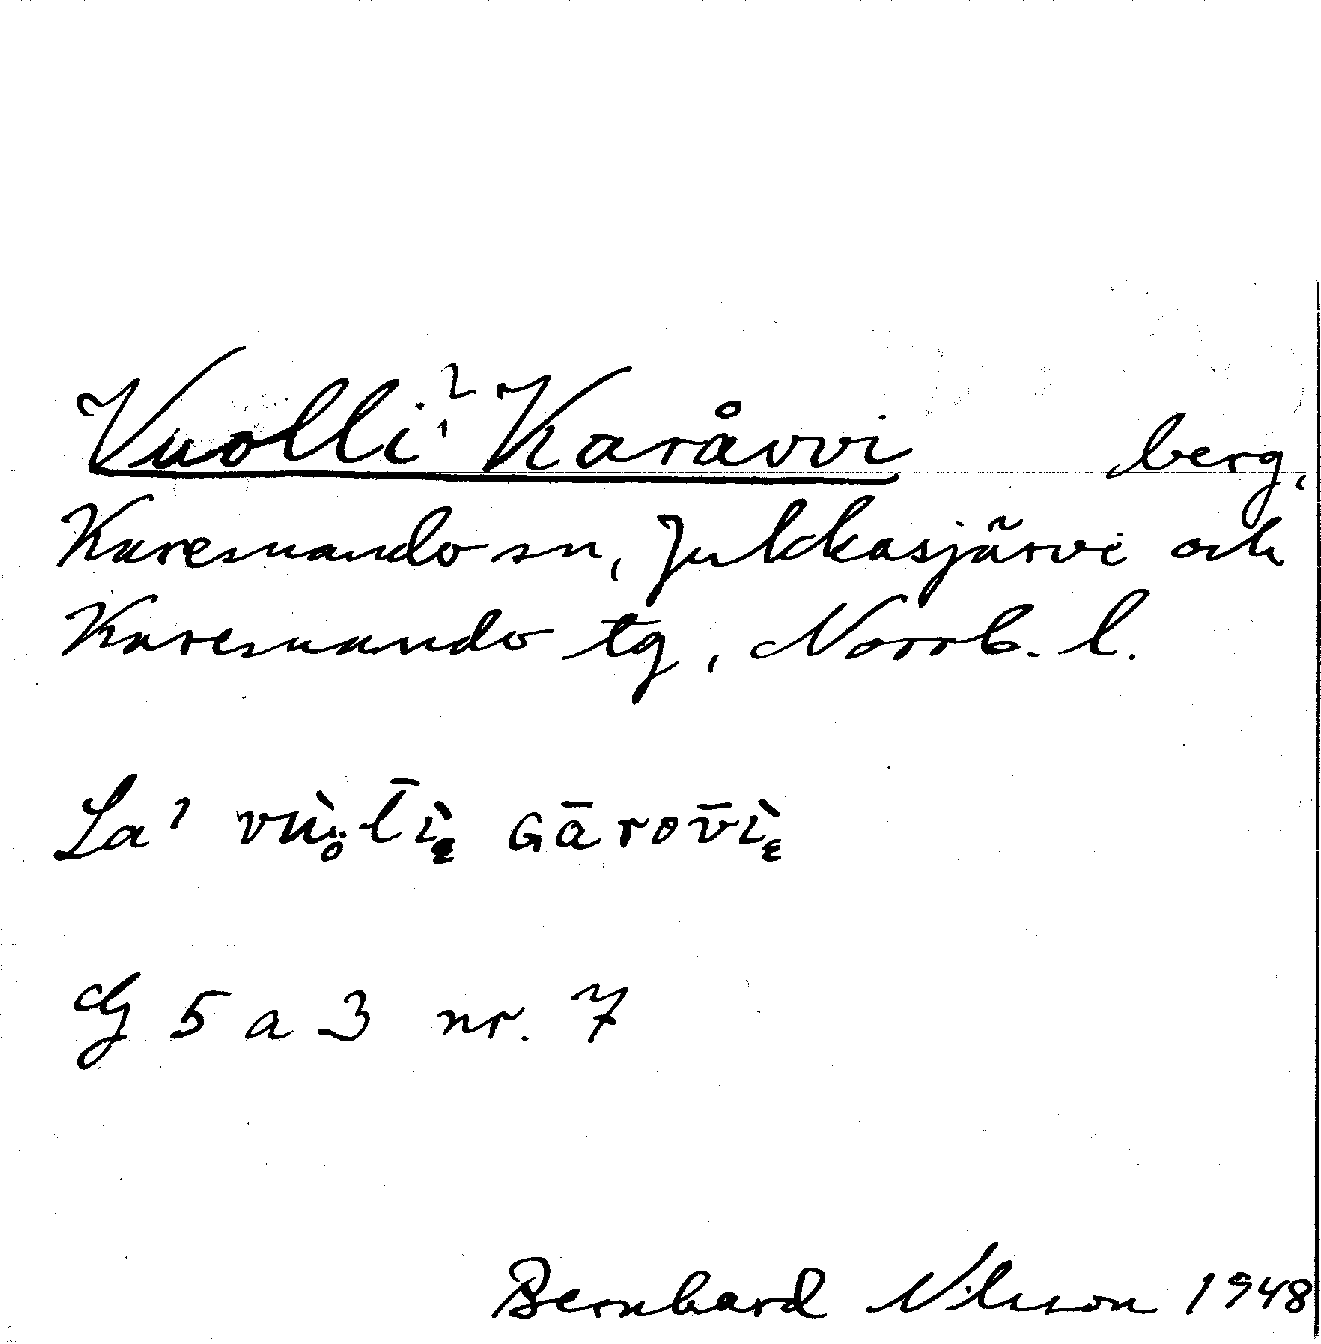 Vuolli Karåvvi berg,
Karesuando sn, Jukkasjärvi och
Karesuando tg, Norrb. l.
La
G 5 a 3 nr. 7
Bernhard Nilsson 1948